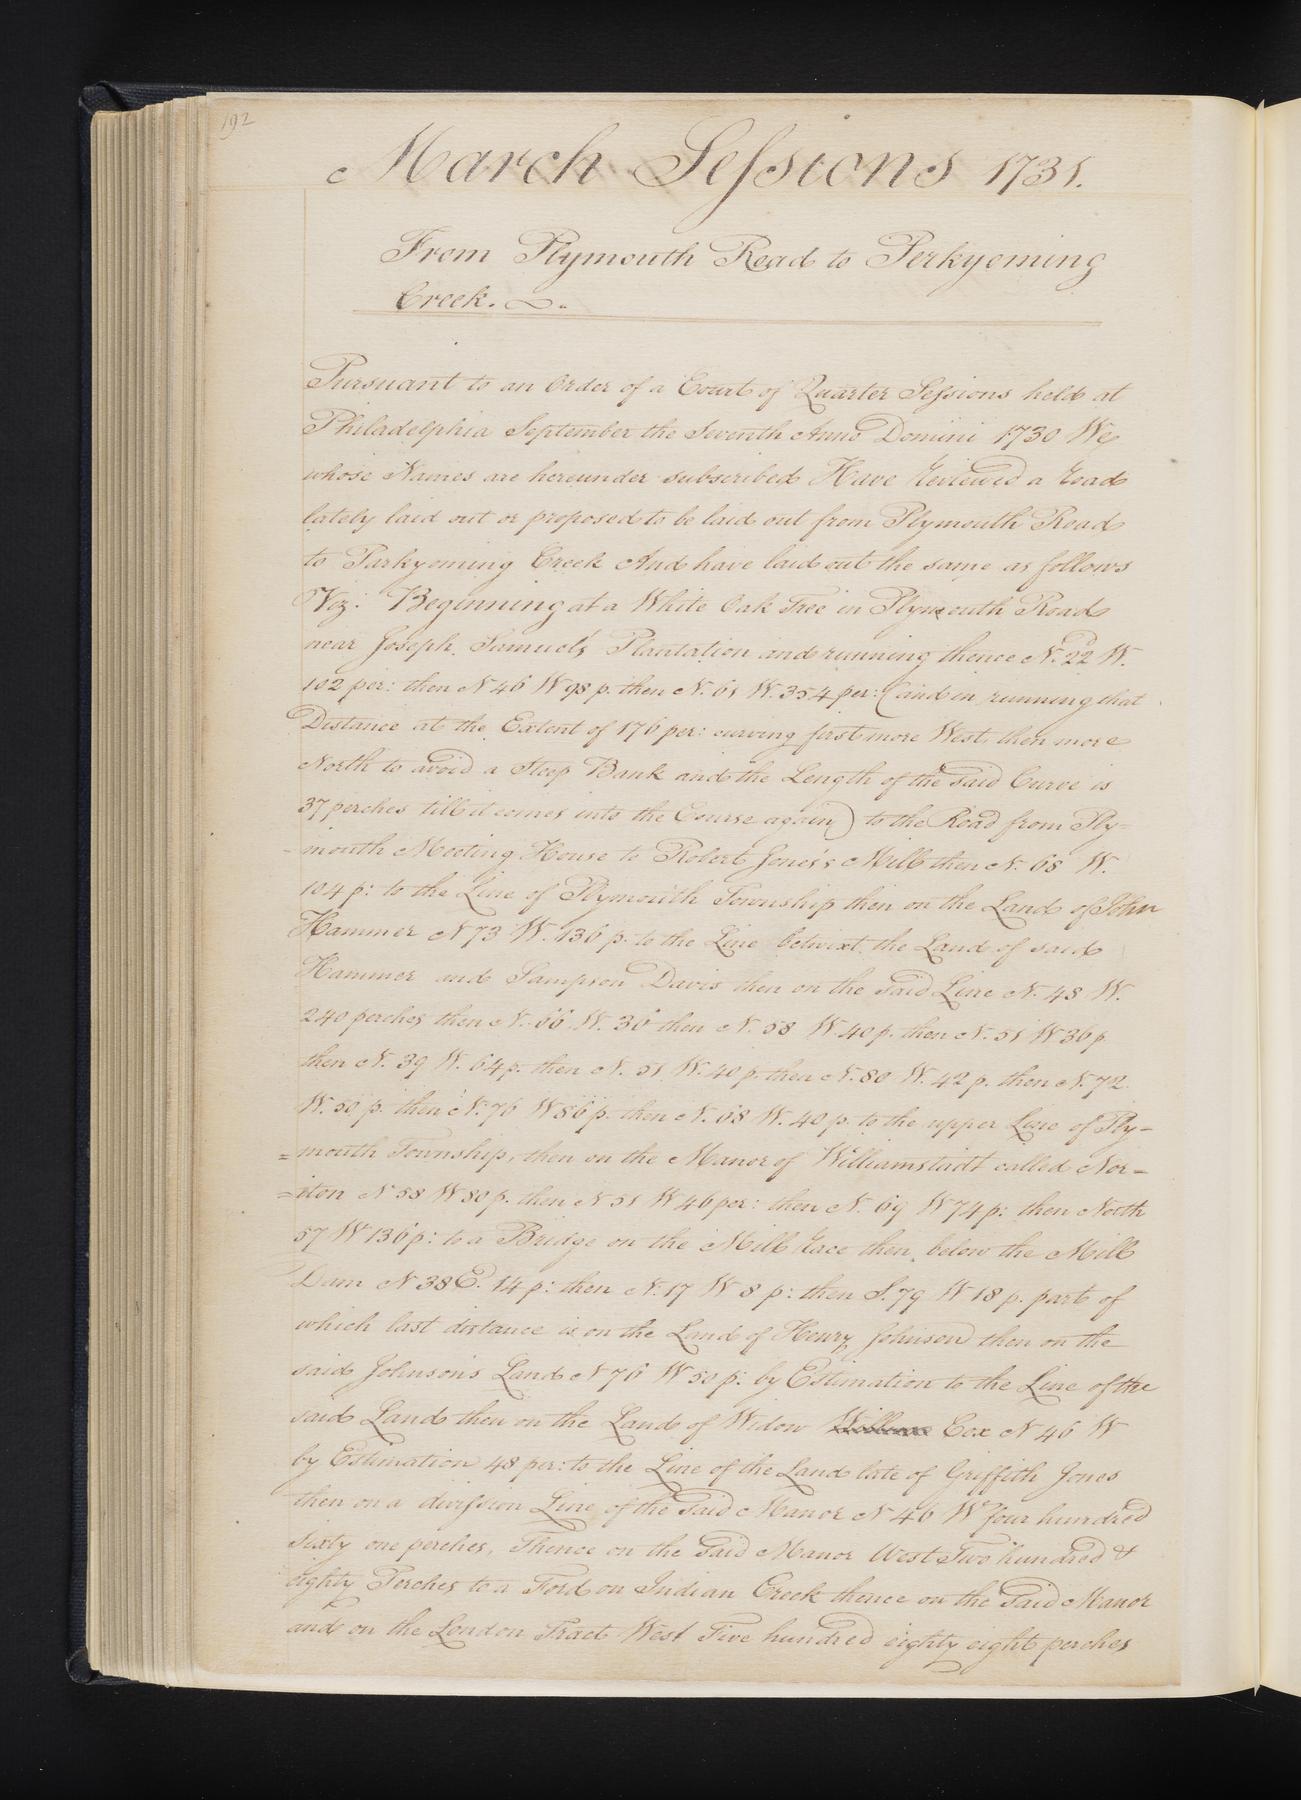 192
March Sessions 1731.
From Plymouth Road to Perkyoming
Creek.
Pursuant to an Order of a Court of Quarter Sessions held at
Philadelphia September the Seventh Anno Domini 1730 We
whose Names are hereunder subscribed Have Reviewed a Road
lately laid out or proposed to be laid out from Plymouth Road
to Parkyoming Creek And have laid out the same as follows
Viz: Beginning at a White Oak Tree in Plymouth Road
near Joseph Samuel's Plantation and running thence N. 22 W.
102 per: then N 46 W 98 p. then N. 61 W. 354 per: (and in running that
Distance at the Extent of 176 per: curving first more West, then more
North to avoid a Steep Bank and the Length of the said Curve is
37 perches till it comes into the Course again) to the Road from Ply-
mouth Meeting House to Robert Jones's Mill then N. 68 W.
104 p: to the Line of Plymouth Township then on the Land of John
Hammer N 73 W. 136 p. to the Line betwixt the Land of said
Hammer and Sampson Davis then on the said Line N. 48 W.
240 perches then N. 66 W. 36 then N. 58 W. 40 p. then N. 51 W 36 p
then N. 39 W. 64 p. then N. 51 W. 40 p. then N. 80 W. 42 p. then N. 72.
W. 50 p. then N. 76 W 86 p. then N. 68 W. 40 p. to the upper Line of Ply-
=mouth Township, then on the Manor of Williamstadt called Nor=
=iton N 58 W 80 p. then N 51 W 46 per: then N. 69 W 74 p: then North
57 W 136 p: to a Bridge on the Mill Race then below the Mill
Dam N 38 E. 14 p: then N. 17 W 8 p: then S. 79 W 18 p. part of
which last distance is on the Land of Henry Johnson then on the
said Johnson's Land N 76 W 50 p: by Estimation to the Line of the
said Land then on the Land of Widow Cox N 46 W
by Estimation 48 per: to the Line of the Land late of Griffith Jones
then on a division Line of the said Manor N 46 W four hundred
sixty one perches, Thence on the said Manor West Two hundred &
eighty Perches to a Ford on Indian Creek thence on the said Manor
and on the London Tract West Five hundred eighty eight perches